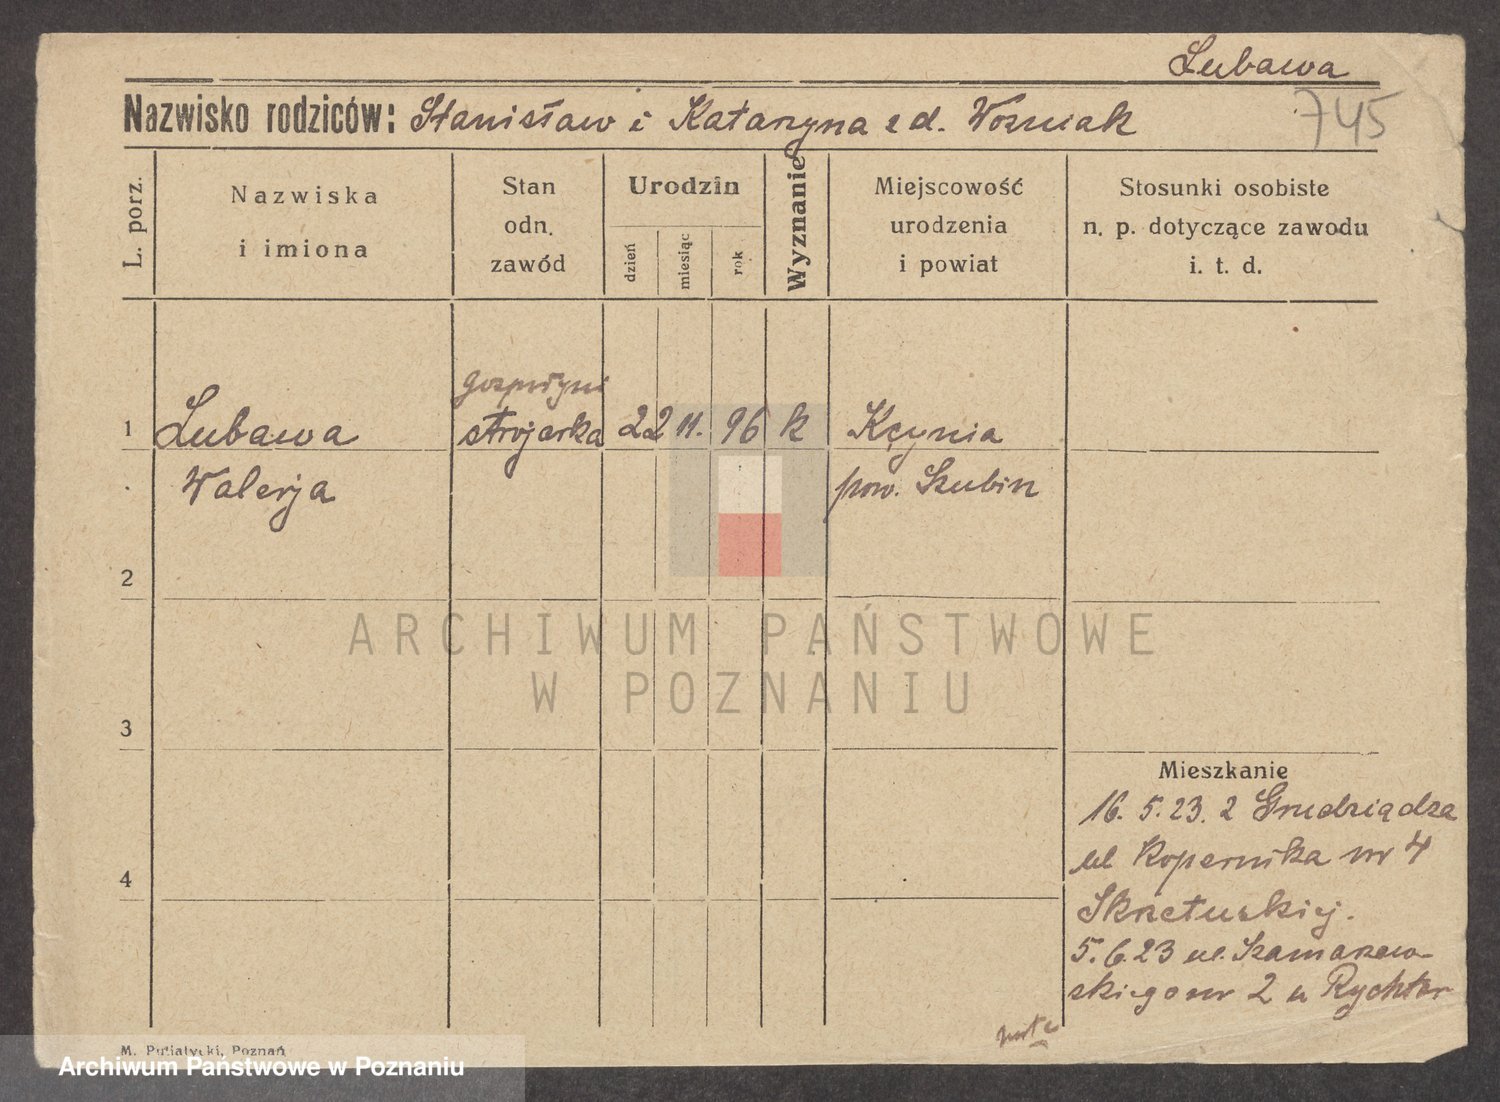 Lubawa
Nazwisko rodziców: Stanisław i Katarzyna z d. Wozniak
745
L. porz.
Nazwiska
i imiona
Stan
odn.
zawód
Urodzin
dzień
miesiąc
rok
Wyznanie
Miejscowość
urodzenia
i powiat
Stosunki osobiste
n. p. dotyczące zawodu
i. t. d.
1 Lubawa strojarka 22 11. 96 k Kcynia
Walerja pow. Szubin
2
ARCHIWUM PAŃSTWOWE
W POZNANIU
3
Mieszkanie
16. 5. 23. z Grudziądza
ul Kopernika nr 4
4
5. 6. 23 ul. Szamarzew-
skiego nr 2 u Rychter
M. Putiatycki, Poznań
Archiwum Państwowe w Poznaniu